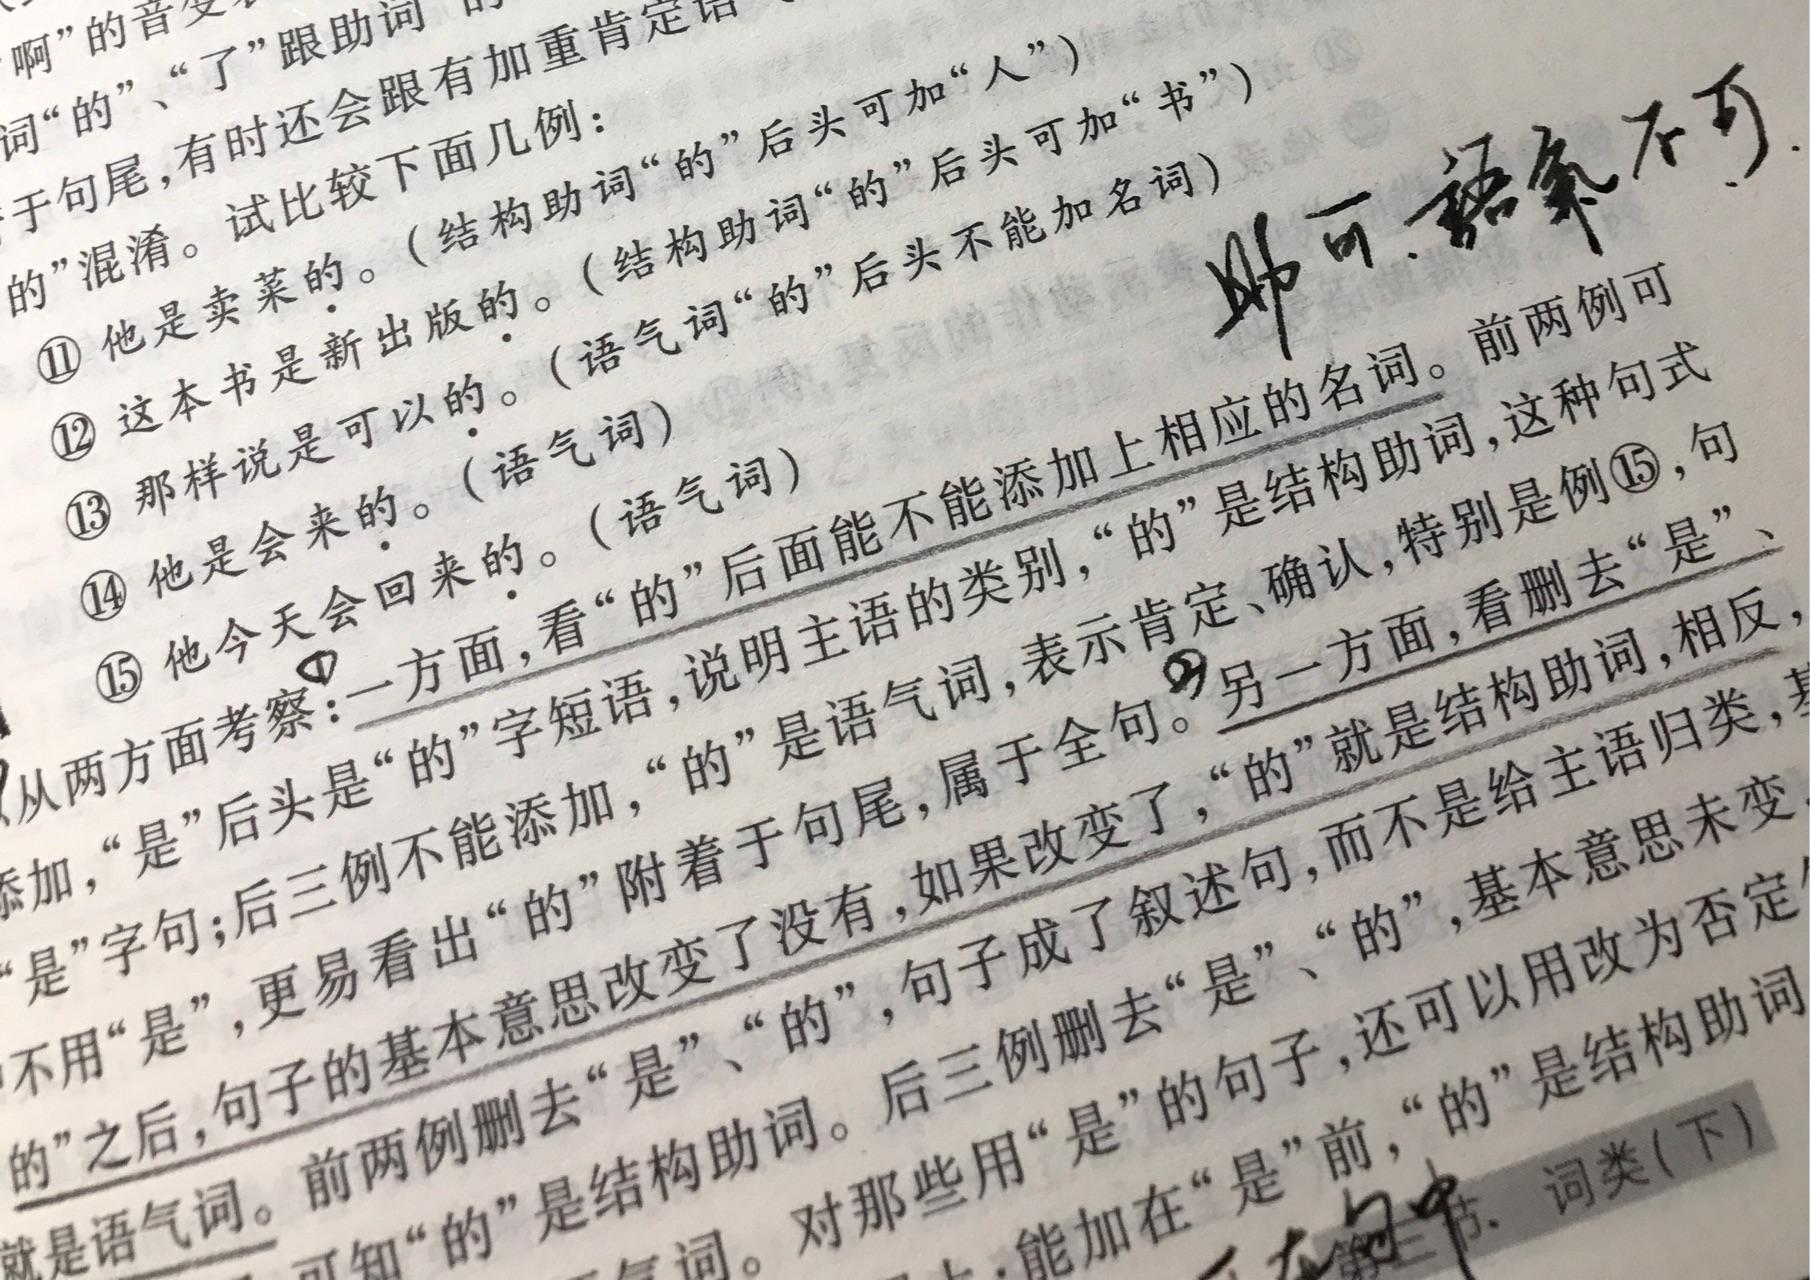 啊”的音变
词“的”、“了”跟助词“的
于句尾，有时还会跟有加重肯定语
的”混淆。试比较下面几例：
⑪ 他是卖菜的。（结构助词“的”后头可加“人”）
⑫ 这本书是新出版的。（结构助词“的”后头可加“书”）
⑬ 那样说是可以的。（语气词“的”后头不能加名词）
⑭ 他是会来的。（语气词）
⑮ 他今天会回来的。（语气词）
助可.語氣不可.
从两方面考察：①一方面，看“的”后面能不能添加上相应的名词。前两例可
添加，“是”后头是“的”字短语，说明主语的类别，“的”是结构助词，这种句式
“是”字句；后三例不能添加，“的”是语气词，表示肯定、确认，特别是例⑮，句
不用“是”，更易看出“的”附着于句尾，属于全句。②另一方面，看删去“是”、
的”之后，句子的基本意思改变了没有，如果改变了，“的”就是结构助词，相反，
就是语气词。前两例删去“是”、“的”，句子成了叙述句，而不是给主语归类，
可知“的”是结构助词。后三例删去“是”、“的”，基本意思未变，
气词。对那些用“是”的句子，还可以用改为否定
能加在“是”前，“的”是结构助词
在句中
第三节 词类（下）